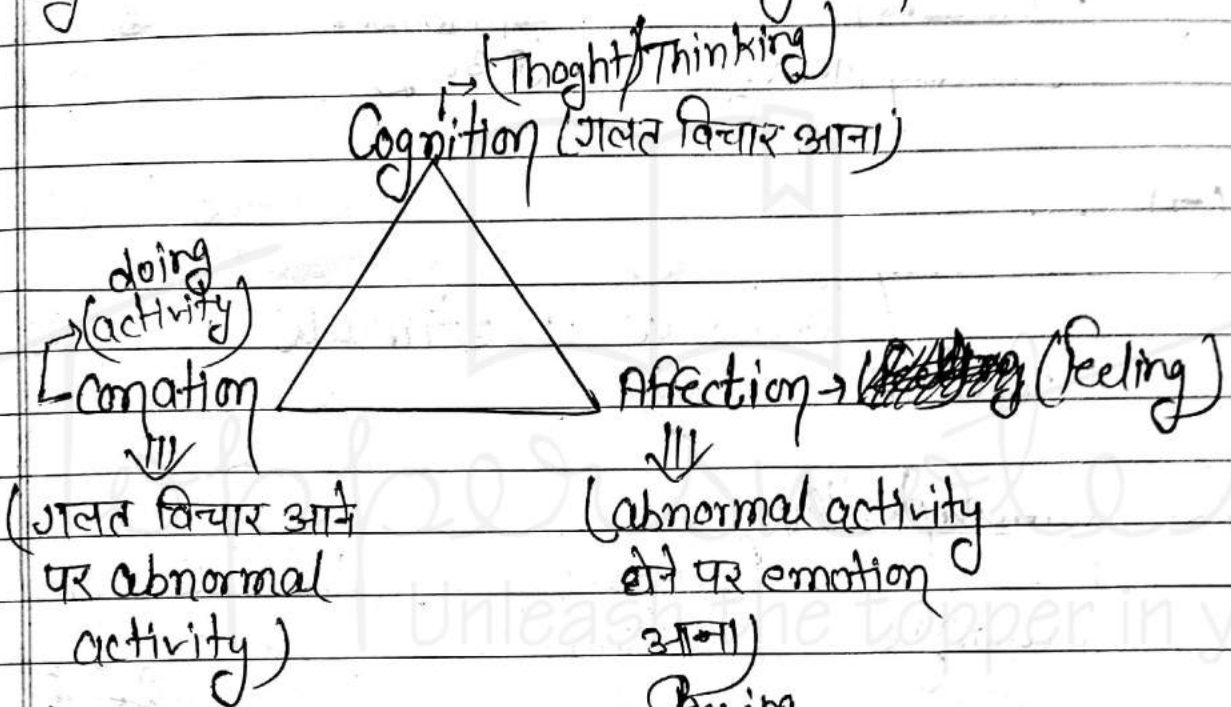 (Thoght/Thinking)
Cognition (गलत विचार आना)
doing
(activity)
Conation
Affection → (feeling)
(गलत विचार आने
पर abnormal
activity)
(abnormal activity
होने पर emotion
आना)
Unleash the topper in y